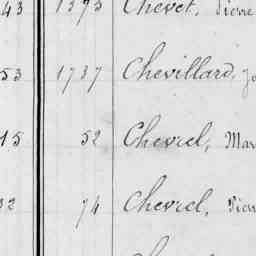 43 1393 Chevet, Pierre
53 1737 Chevillard, Jo
15 52 Chevrel, Mar
32 74 Chevrel, Pier